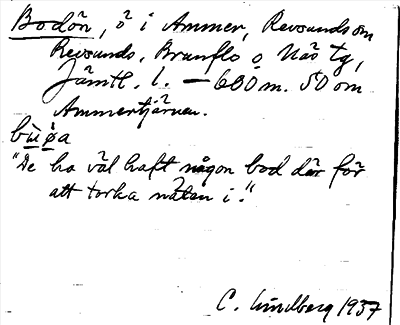 Bodön, ö i Ammer, Revsunds sm
Revsunds, Brunflo o Näs tg,
Jämtl. l. — 600 m. SO om
Ammertjärnen.
"De ha väl haft någon bod där för
att torka näten i."
C. Lindberg 1937